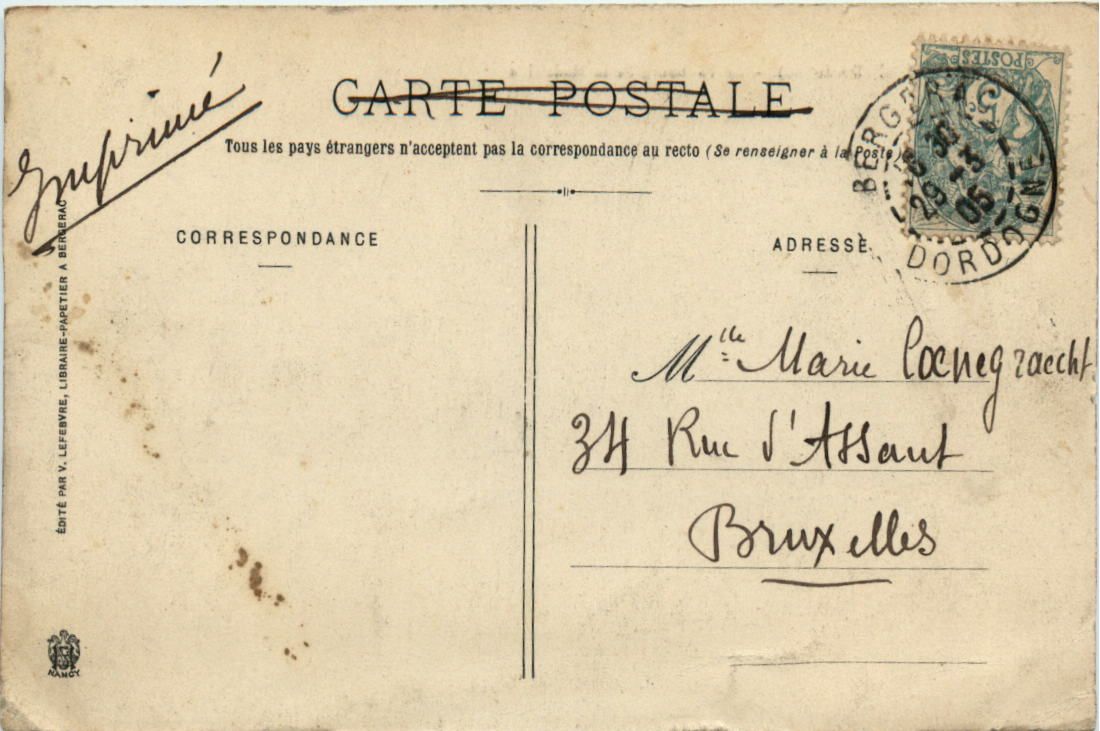 Imprimé
CARTE POSTALE
Tous les pays étrangers n'acceptent pas la correspondance au recto (Se renseigner à la Poste)
CORRESPONDANCE
ADRESSE
POSTES
5
BERGERAC
29 -3
05
DORDOGNE
Mlle Marie
34 Rue d'Assaut
Bruxelles
ÉDITÉ PAR V. LEFEBVRE, LIBRAIRE-PAPETIER A BERGERAC
NANCY